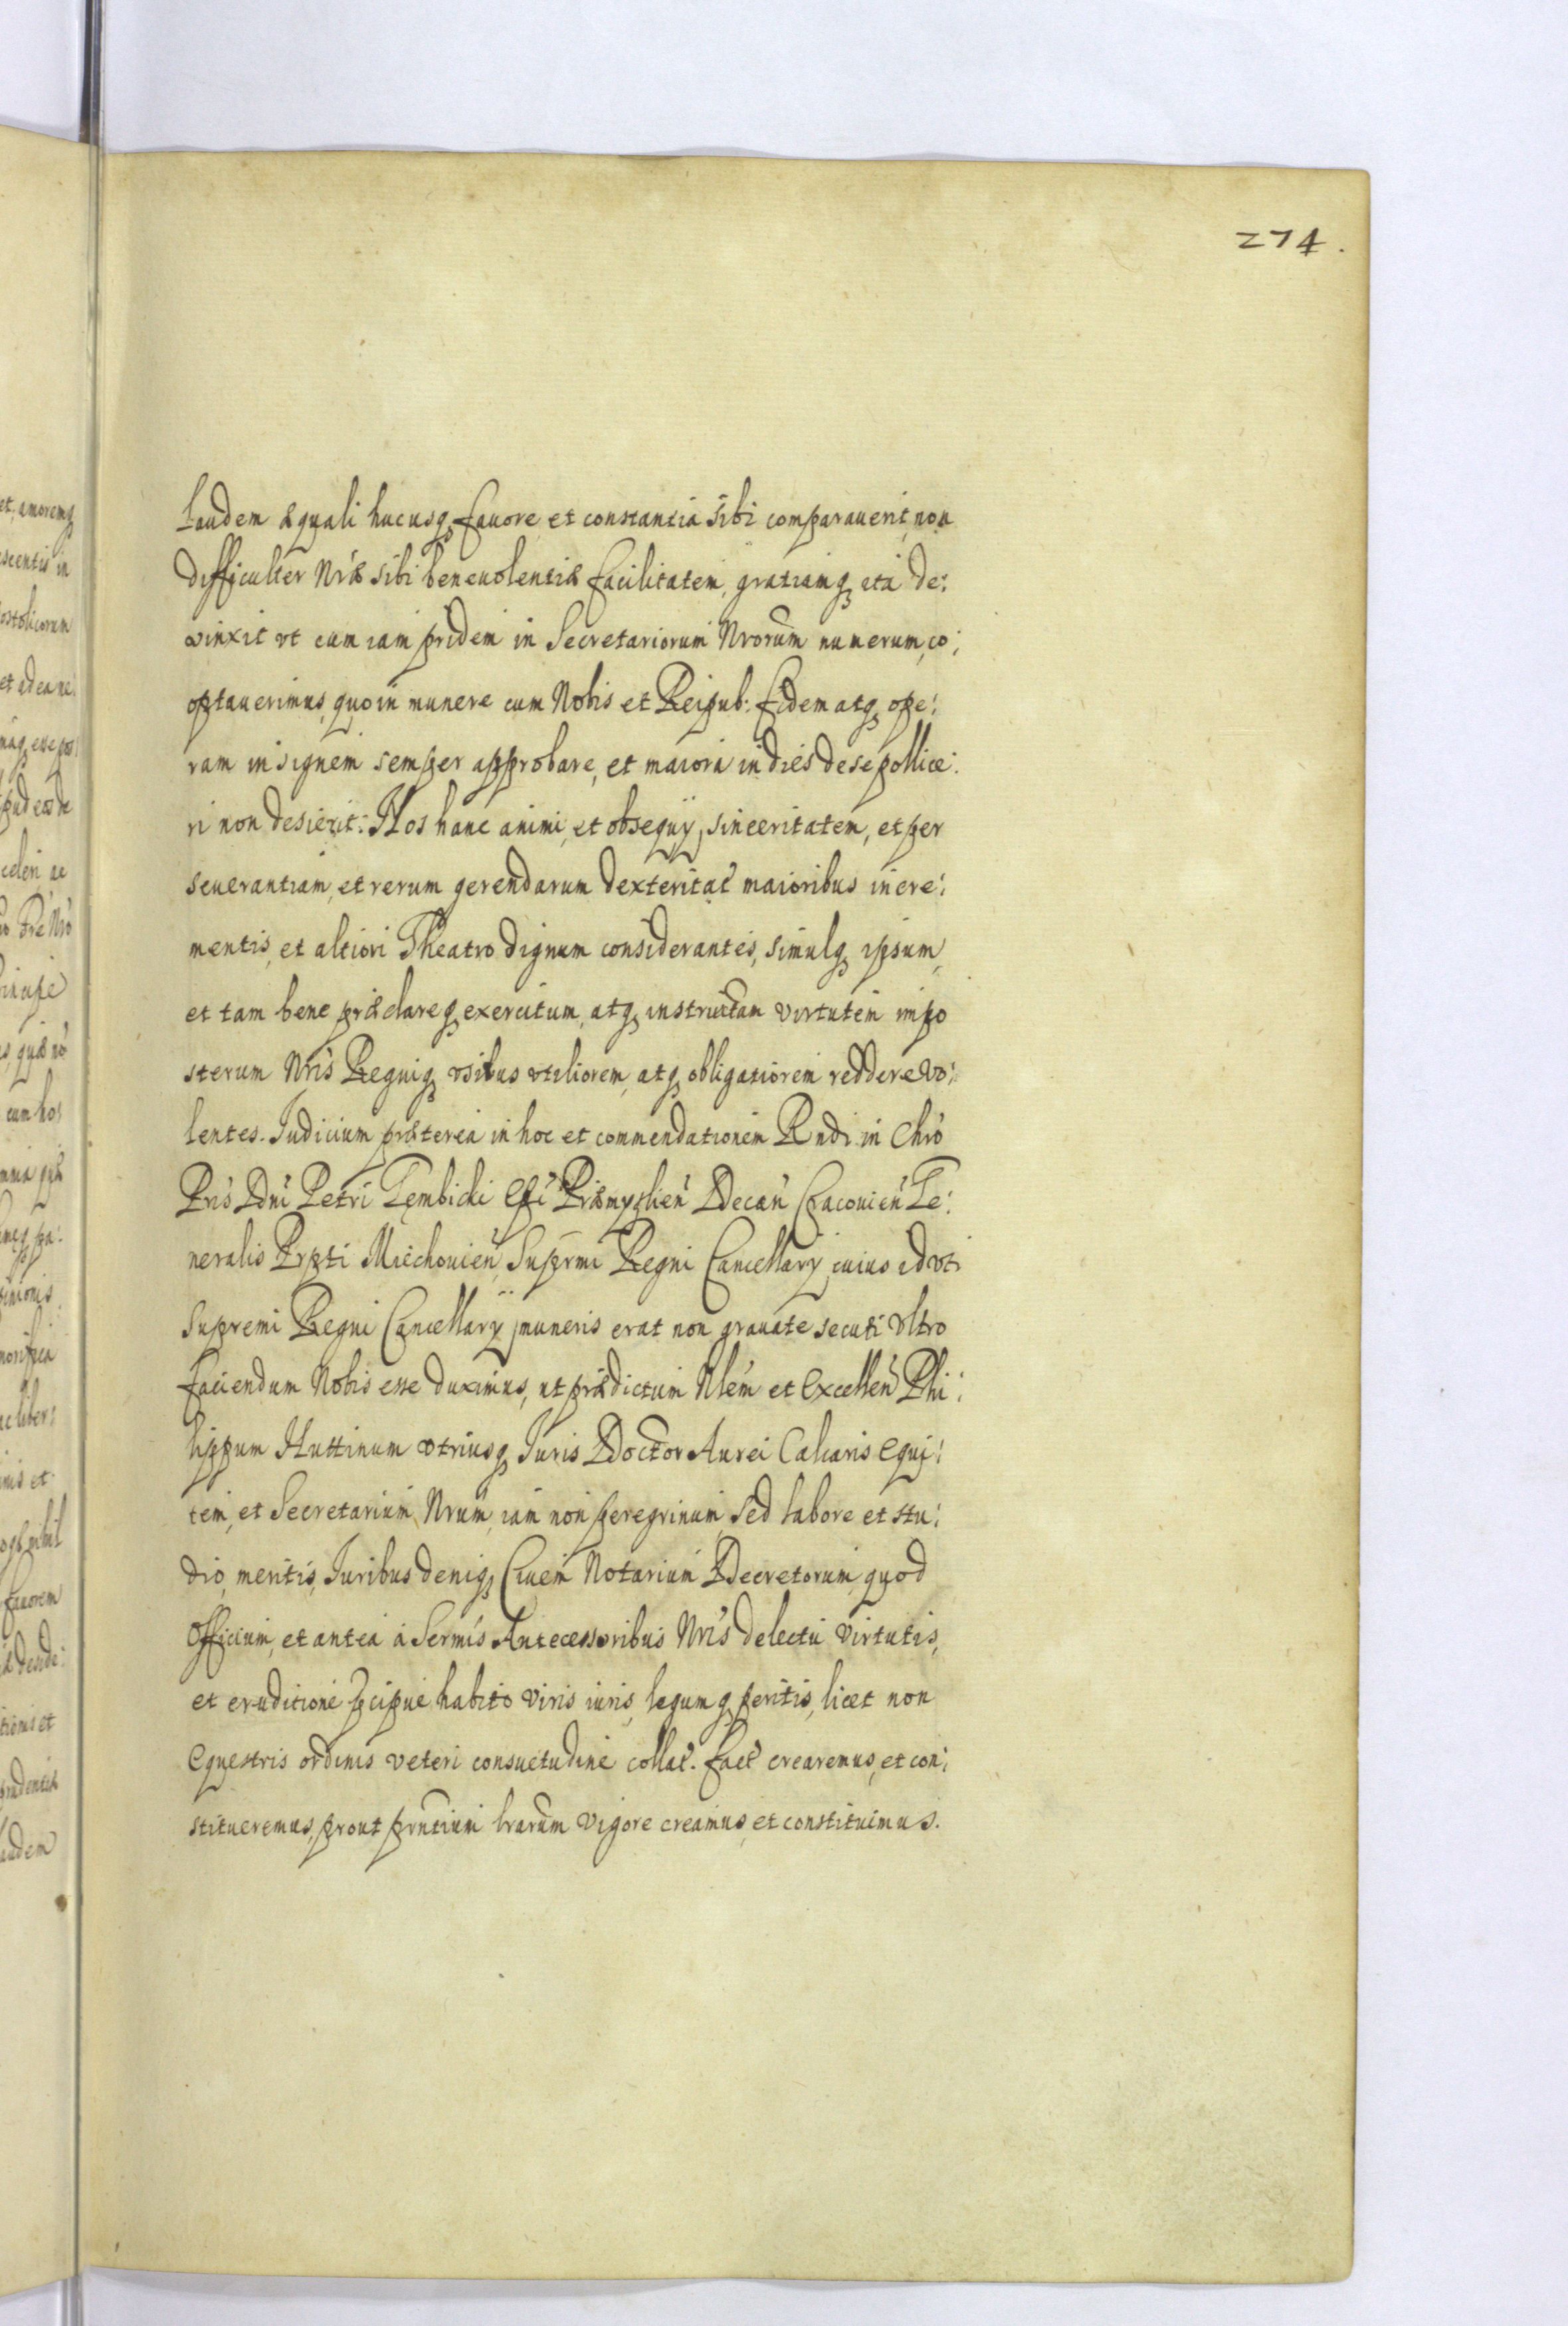 274.
laudem æquali hucusq favore et constantia sibi comparaverit, non
difficulter Nræ sibi benevolentiæ facilitatem, gratiamq ita de:
vinxit ut eum iam pridem in Secretariorum Nrorum numerum co:
optaverimus, quo in munere cum Nobis et Reipub: fidem atq ope:
ram insignem semper approbare, et maiora in dies de se pollice:
ri non desierit: Nos hanc animi, et obsequÿ sinceritatem, et per
severantiam, et rerum gerendarum dexteritat maioribus incre:
mentis, et altiori Theatro dignum considerantes, simulq ipsum,
et tam bene præclareq exercitum, atq instructam virtutem impo
sterum Nris Regniq usibus utiliorem, atq obligatiorem reddere vo:
lentes. Judicium præterea in hoc et commendationem Rndi in Chro
Pris Dni Petri Gembicki Epi Præmyslien Decan Cracovien Ge:
neralis Prpti Miechovien, Suprmi Regni Cancellarÿ, cuius id uti
Supremi Regni Cancellarÿ muneris erat non gravate secuti ultro
faciendum Nobis esse duximus, ut prædictum Nlem et Excellen Phi:
lippum Huttinum utriusq Juris Doctor Aurei Calcaris Equi:
tem, et Secretarium Nrum, iam non peregrinum, sed labore et stu:
dio, meritis, Juribus deniq Civem Notarium Decretorum, quod
Officium, et antea à Sermis Antecessoribus Nris delectu virtutis,
et eruditione pcipue habito viris iuris, legumq peritis, licet non
Equestris ordinis veteri consuetudine collat. fact crearemus, et con:
stitueremus, prout prntium lrarum vigore creamus, et constituimus.